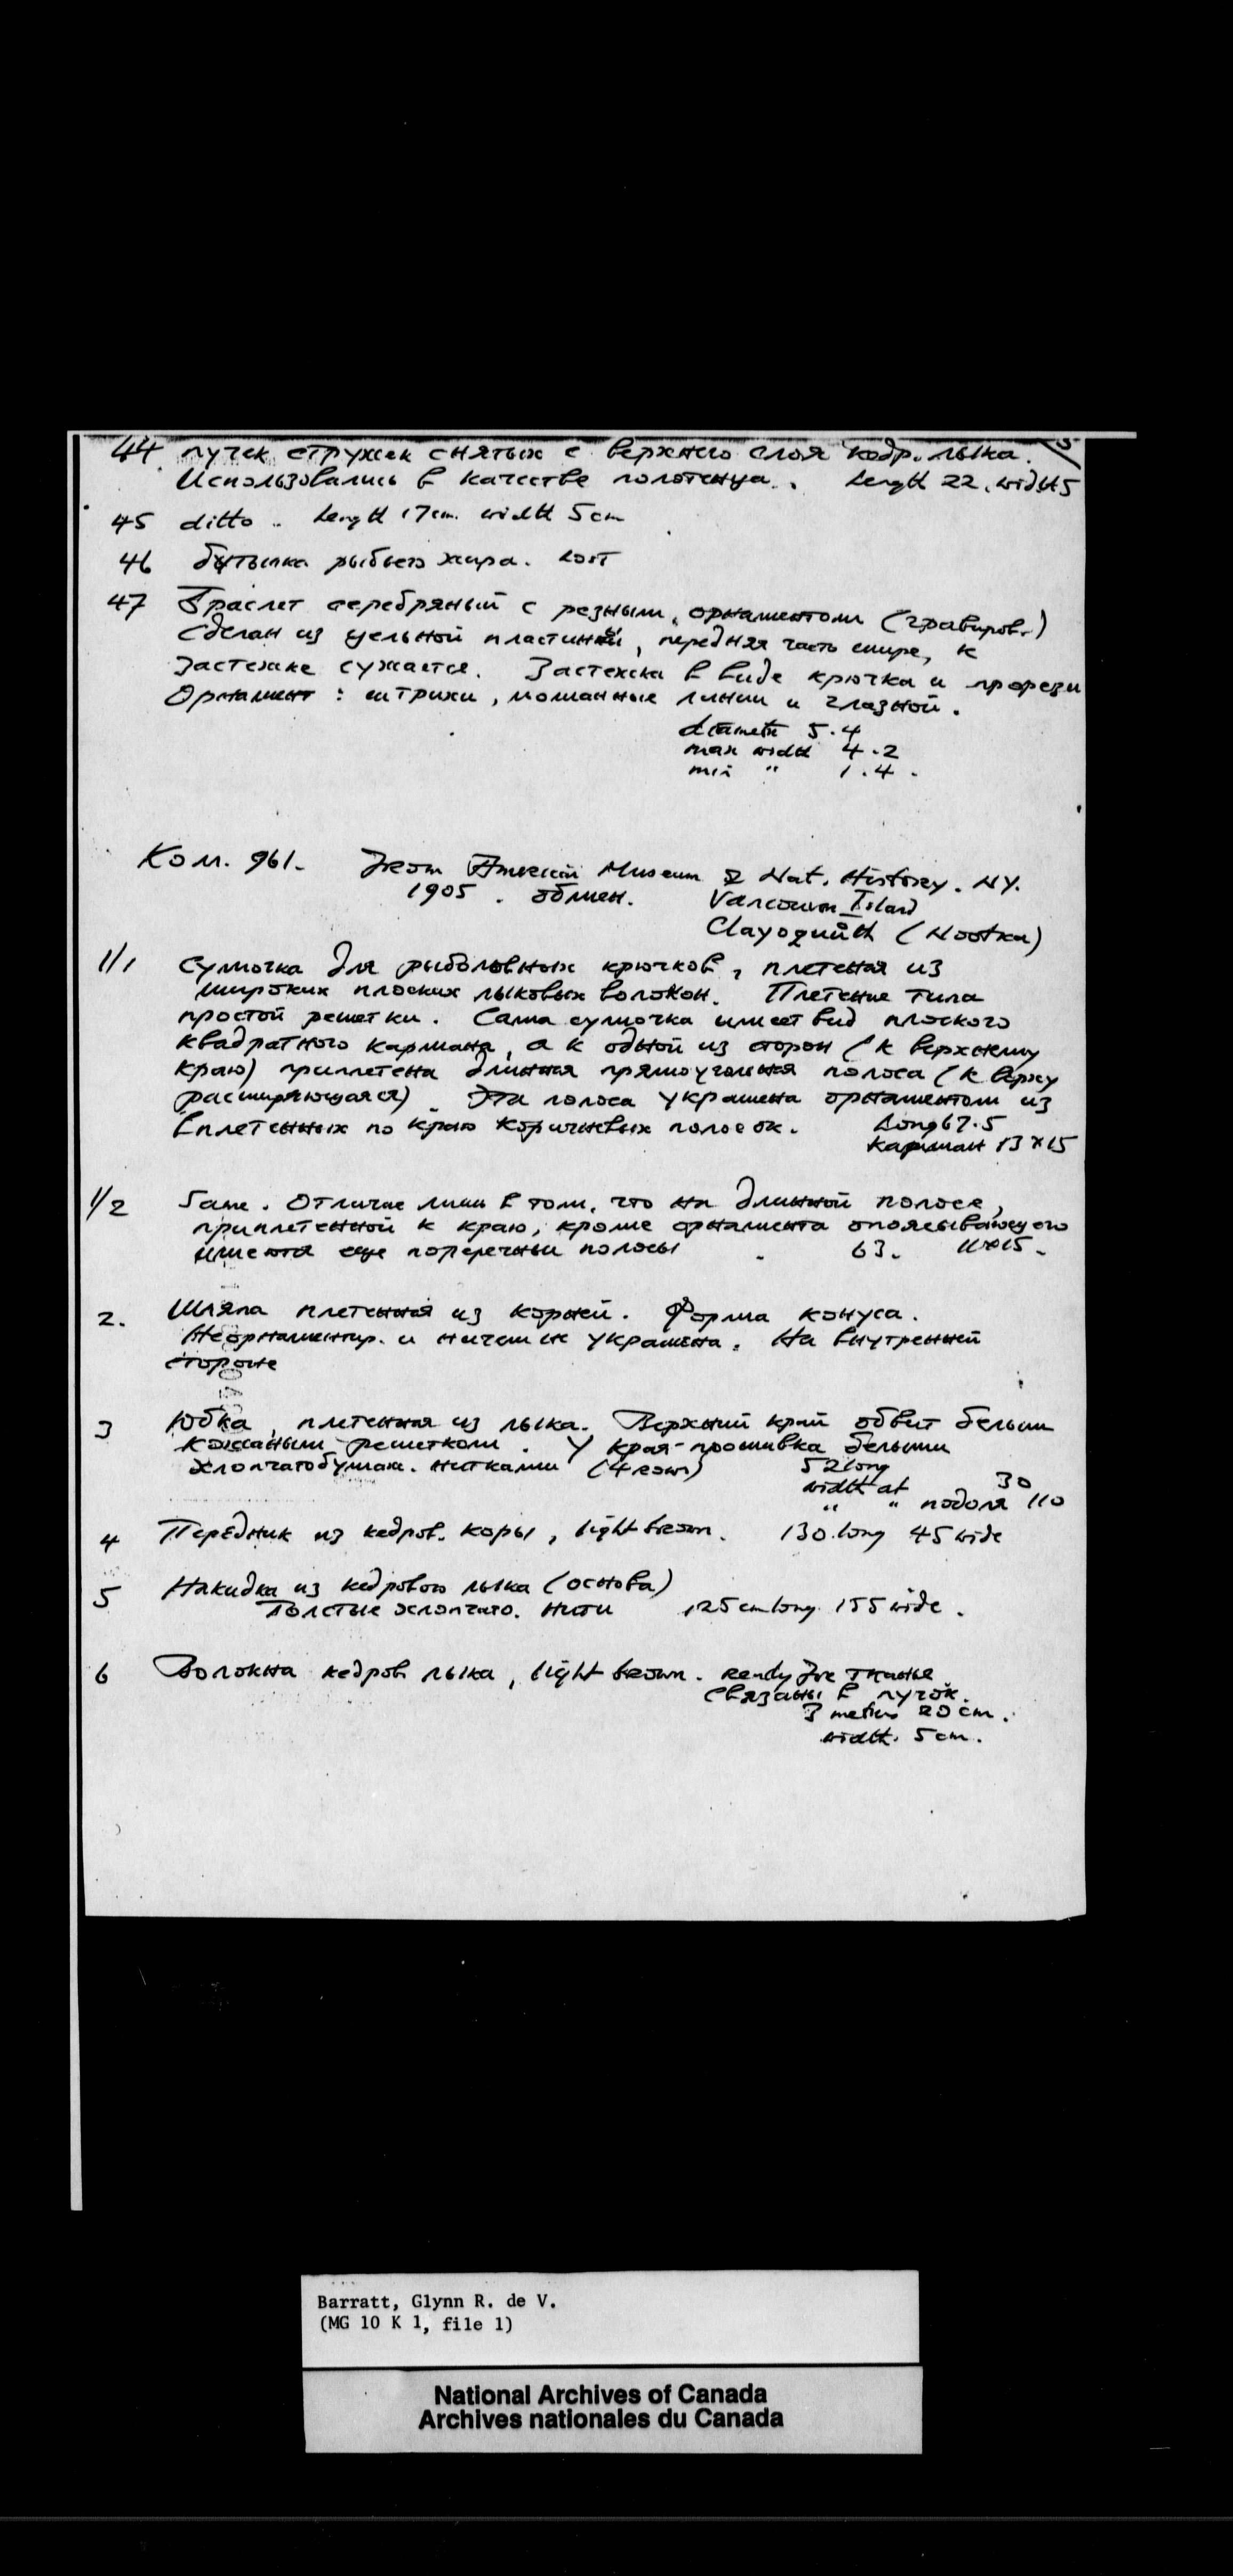 44. пучек стружек снятых с верхнего слоя кедр. лыка.
Использовались в качестве полотенца. Length 22. width 5
45 ditto .. Length 17cm. width 5cm
46 бутылка рыбьего жира. Lost
47 Браслет серебряный с резным. орнаментом (гравиров.)
Сделан из цельной пластинки, передняя часть шире, к
застежке сужается. Застежка в виде крючка и прорези
Орнамент: штрихи, ломанные линии и глазной.
diameter 5.4
max width 4.2
min " 1.4.
Кол. 961. From American Museum of Nat. History. NY.
1905. обмен. Vancouver Island
Clayoquoth (Nootka)
1/1 Сумочка для рыболовных крючков, плетеная из
широких плоских лыковых волокон. Плетение типа
простой решетки. Сама сумочка имеет вид плоского
квадратного кармана, а к одной из сторон (к верхнему
краю) приплетена длинная прямоугольная полоса (к верху
расширяющаяся). Эта полоса украшена орнаментом из
вплетенных по краю коричневых полосок. Long 67.5
карман 13 x 15
1/2 Same. Отличие лишь в том, что на длинной полосе,
приплетенной к краю, кроме орнамента опоясывающего
имеются еще поперечные полосы. 63. 11x15.
2. Шляпа плетенная из корней. Форма конуса.
Неорнаментир. и ничем не украшена. На внутренней
стороне
3 Юбка, плетенная из лыка. Верхний край обвит белым
кожаным ремешком. У края прошивка белыми
хлопчатобумаж. нитками (4 rows) 52 long
width at 30
" " подоля 110
4 Передник из кедров. коры, light brown. 130. long 45 wide
5 Накидка из кедрового лыка (основа)
Толстые хлопчато. нити 125 cm long 155 wide.
6 Волокна кедров. лыка, light brown. ready for тканья
связаны в пучок.
3 meters 20 cm.
width. 5 cm.
Barratt, Glynn R. de V.
(MG 10 K 1, file 1)
National Archives of Canada
Archives nationales du Canada